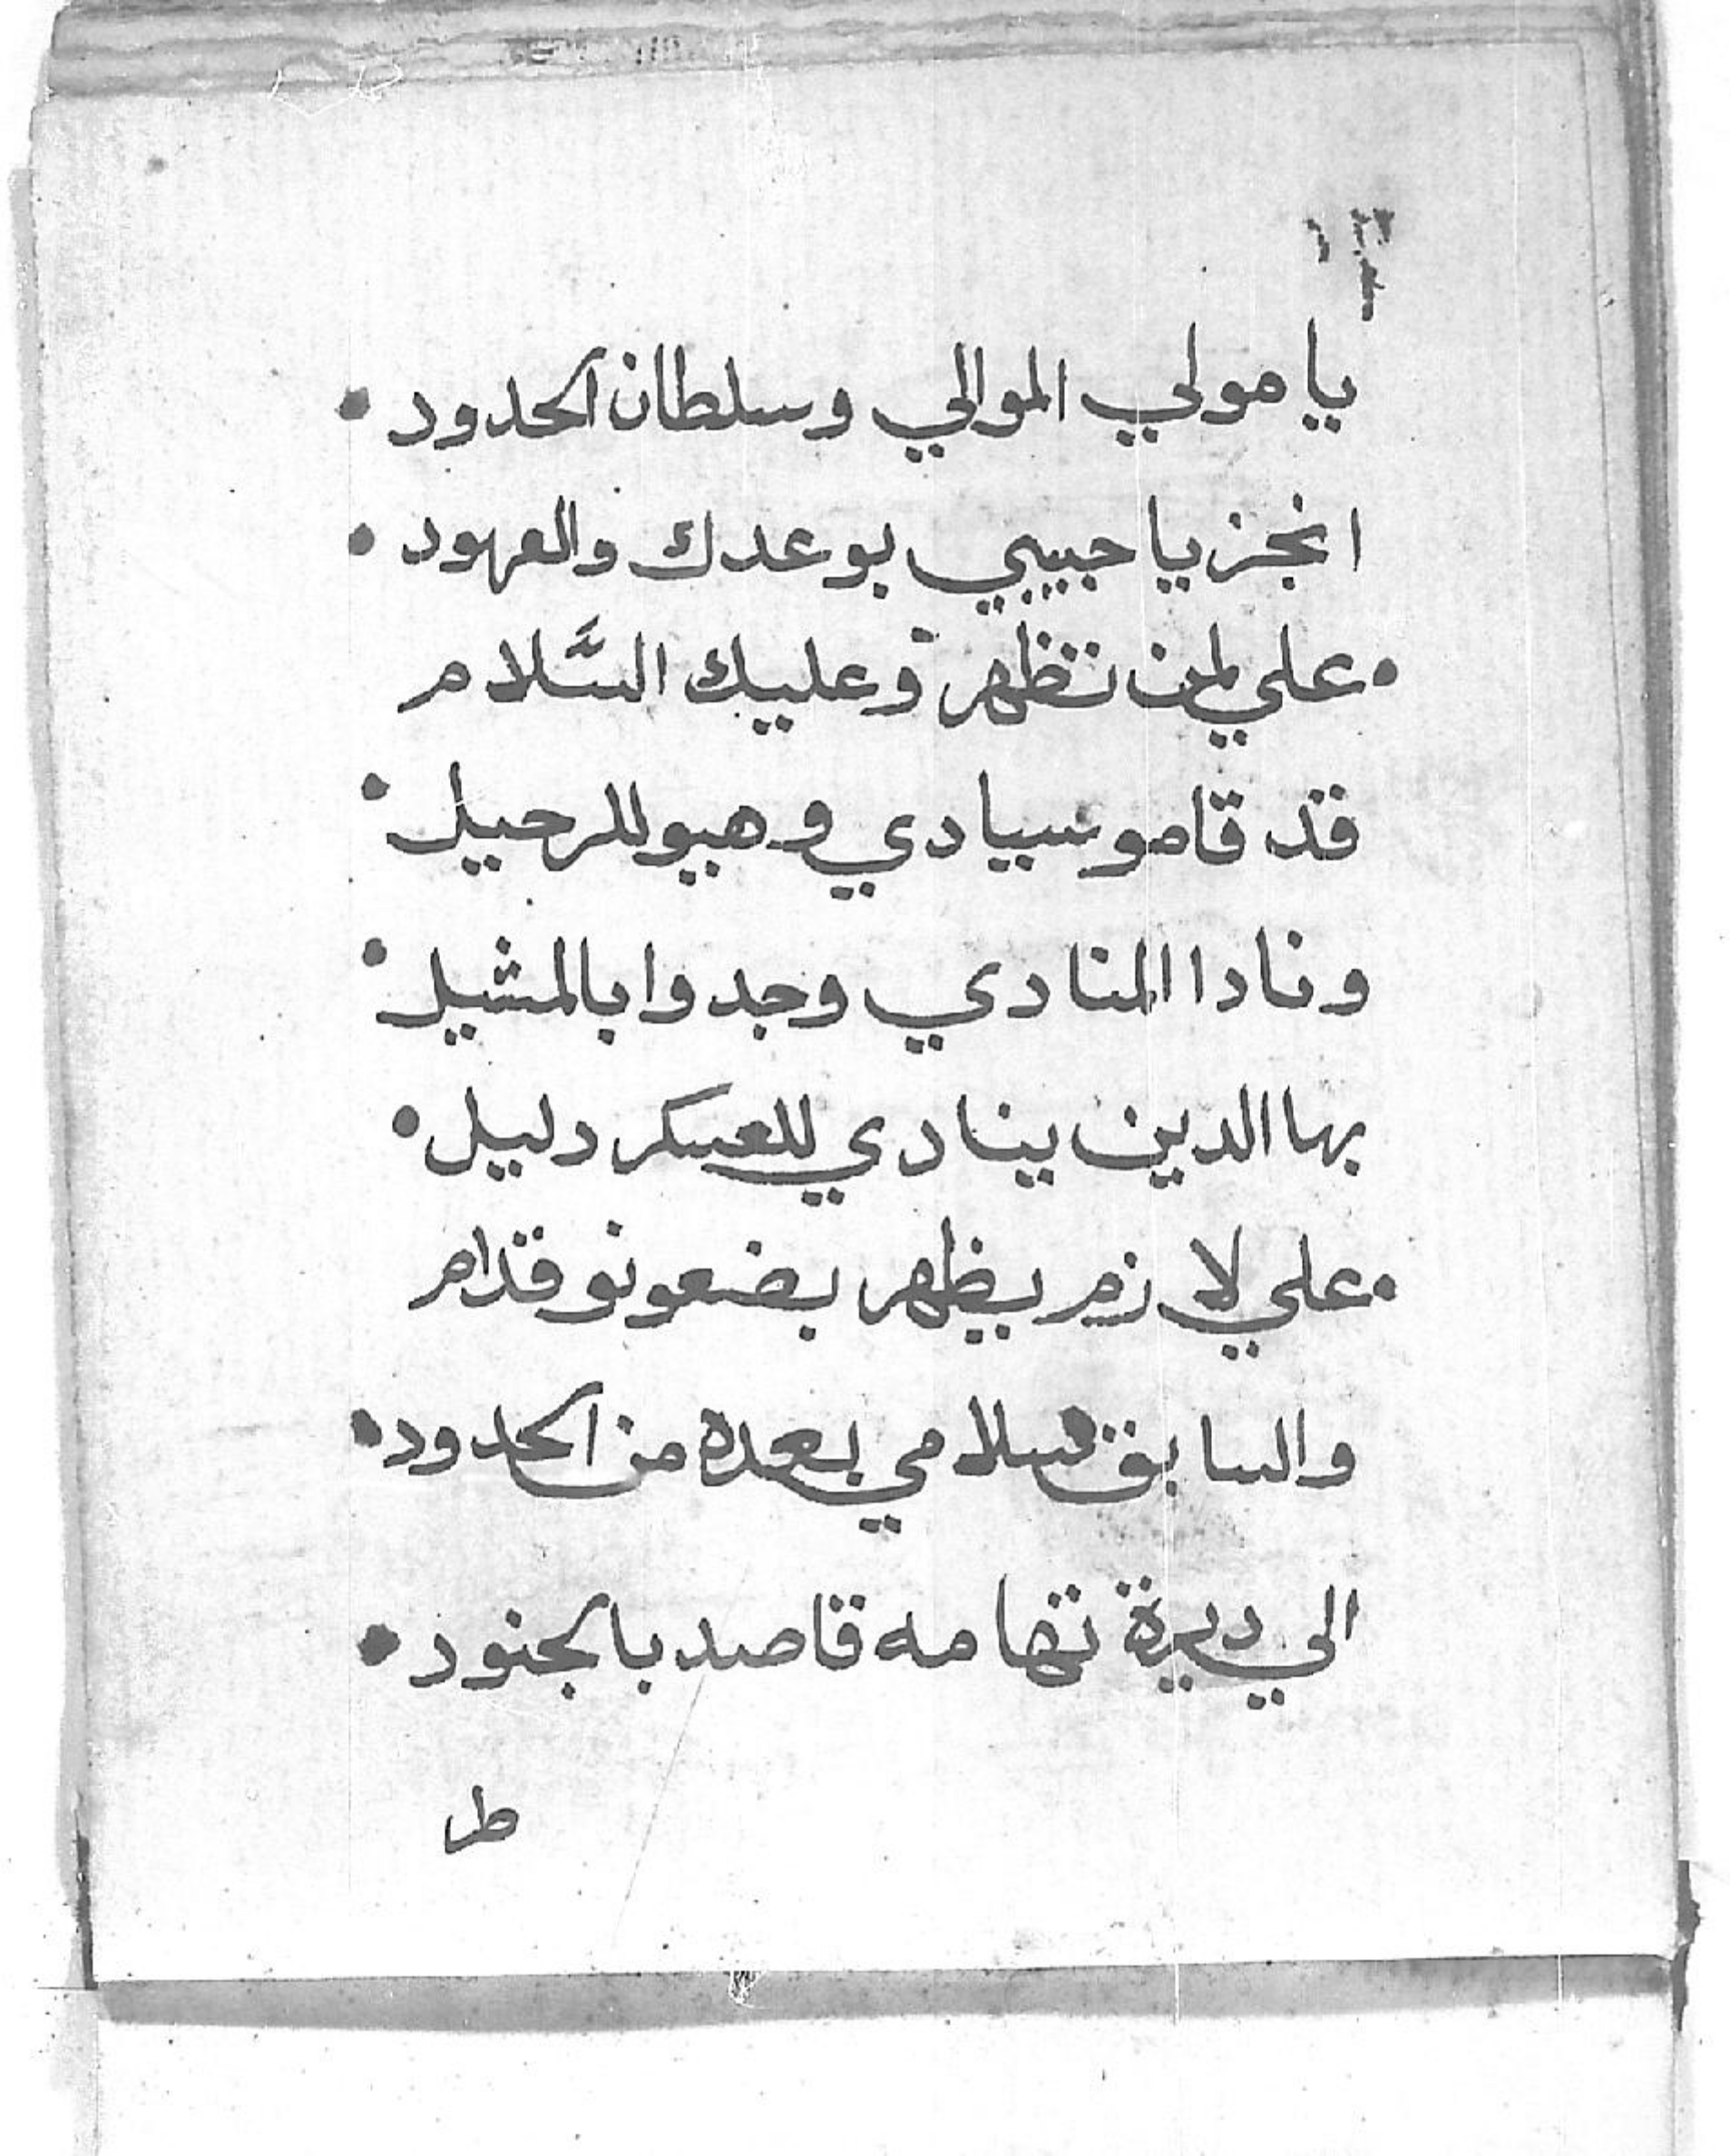 ١٣
يا مولي الموالي وسلطان الحدود •
انجز يا حبيبي بوعدك والعهود •
• علي لمن تظهر وعليك السَّلام
قد قامو سيادي وهبو للرحيل •
ونادا المنادي وجدوا بالمشيل •
بها الدين ينادي للعسكر دليل •
• علي لازم يظهر يضعونو قدام
والسابق سلامي بعده من الحدود •
الي ديرة تهامه قاصد بالجنود •